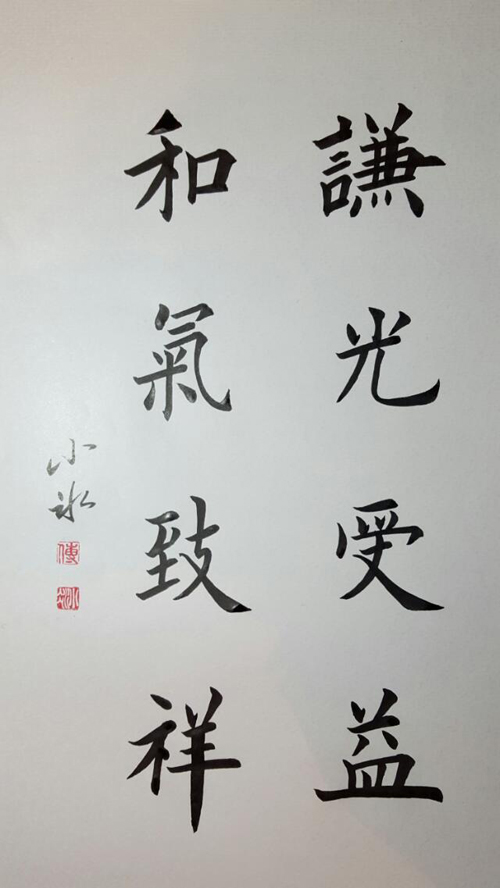 謙光受益
和氣致祥
小冰
傅